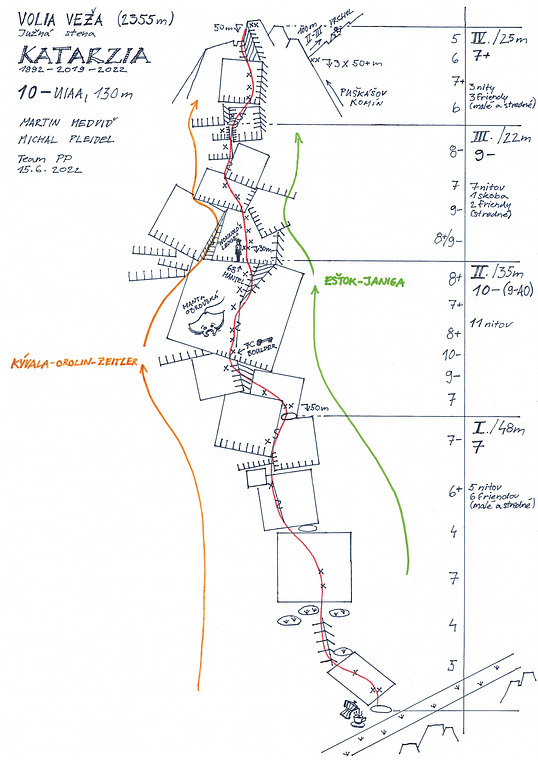 VOLIA VEŽA (2355m)
Južná stena
KATARZIA
1992-2019-2022
10- UIAA, 130m
MARTIN MEDVIĎ
MICHAL PLEIDEL
Team PP
15.6. 2022
50m
100m
II-III VRCHOL
3 x 50m
PUŠKÁŠOV
KOMÍN
5
6
7+
6
IV./25m
7+
3 nity
3 friendy
(malé a stredné)
8-
7
9-
8+/9-
III./22m
9-
7 nitov
1 skoba
2 friendy
(stredné)
30m
MANTEL
MANTA
OBROVSKÁ
7C
BOULDER
EŠTOK-JANIGA
KÝVALA-OROLIN-ZEITLER
8+
7+
8+
10-
9-
7
II./35m
10-(9-A0)
11 nitov
50m
7-
6+
4
7
4
5
I./48m
7
5 nitov
6 friendov
(malé a stredné)